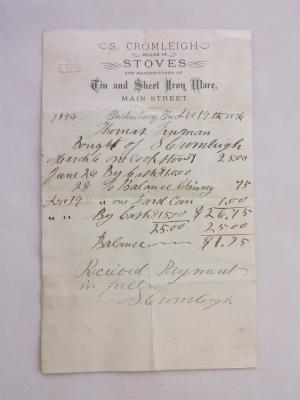 S. CROMLEIGH
DEALER IN
STOVES
AND MANUFACTURER OF
Tin and Sheet Iron Ware,
MAIN STREET.
1884 Perkasburg, Pa Dec 19th 1884
Thomas
Bought of S Cromleigh
March 6 one Cook Stove 25.00
June 26 By Cash $10.00
28 To Balance Chimney 75
Dec 19 " one Lard Can 1.00
" " By Cash $15.00 $26.75
25.00 25.00
Balance $1.75
Recieved Payment
in full
S Cromleigh